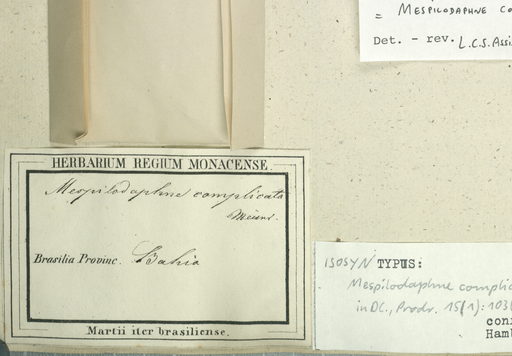 = MESPILODAPHNE CO
Det. - rev. L.C.S. Assi
HERBARIUM REGIUM MONACENSE.
Mespilodaphne complicata
Meissn.
Brasilia Provinc. Bahia
Martii iter brasiliense.
ISOSYNTYPUS:
Mespilodaphne complic
in DC., Prodr. 15(1): 103
con
Hamb